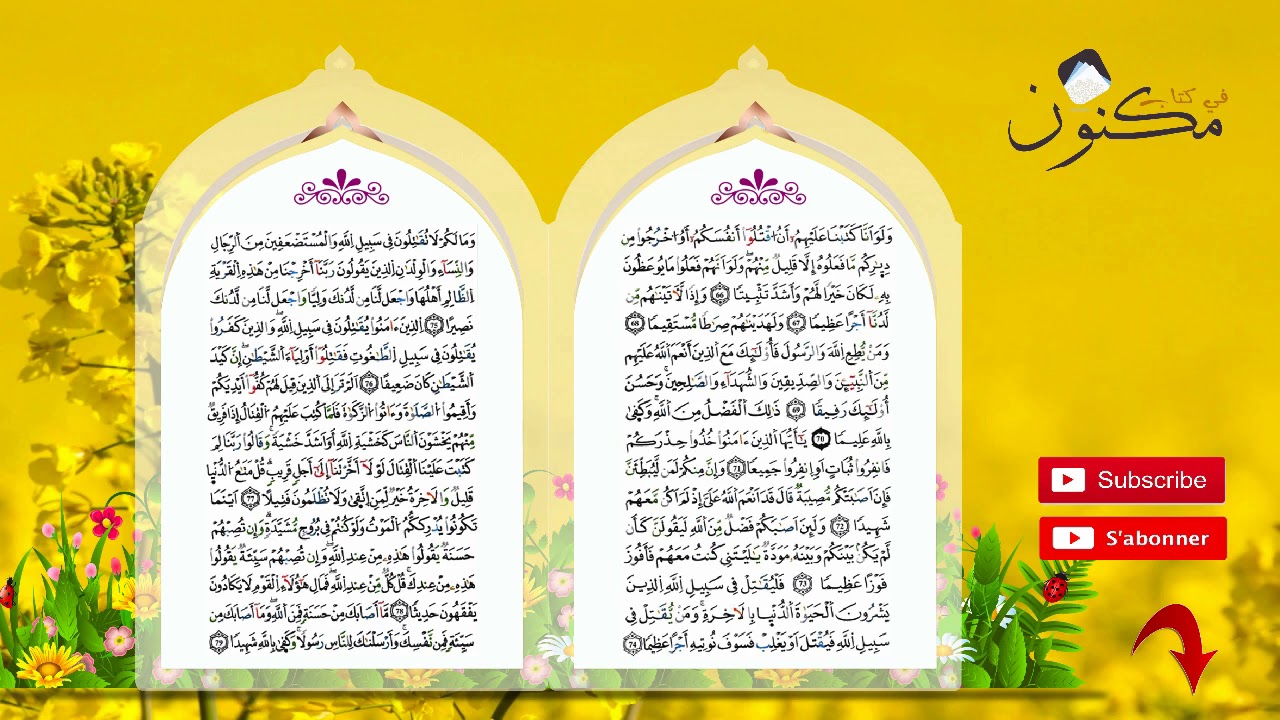 في كتاب
مكنون
وَلَوَ اَنَّا كَتَبْنَا عَلَيْهِمُۥٓ أَنُ اُ۟قْتُلُوٓا۟ أَنفُسَكُمُۥٓ أَوُ اُ۟خْرُجُوا۟ مِن
دِيٰ۪رِكُم مَّا فَعَلُوهُ إِلَّا قَلِيلٞ مِّنْهُمْۖ وَلَوَ اَنَّهُمْ فَعَلُوا۟ مَا يُوعَظُونَ
بِهِۦ لَكَانَ خَيْرٗا لَّهُمْ وَأَشَدَّ تَثْبِيتٗا 66 وَإِذٗا لَّأٓتَيْنَٰهُم مِّن
لَّدُنَّآ أَجْرًا عَظِيمٗا 67 وَلَهَدَيْنَٰهُمْ صِرَٰطٗا مُّسْتَقِيمٗا 68
وَمَنْ يُّطِعِ اِ۬للَّهَ وَالرَّسُولَ فَأُو۟لَٰٓئِكَ مَعَ اَ۬لذِينَ أَنْعَمَ اَ۬للَّهُ عَلَيْهِم
مِّنَ اَ۬لنَّبِيٓـِٕۧنَ وَالصِّدِّيقِينَ وَالشُّهَدَآءِ وَالصَّٰلِحِينَۖ وَحَسُنَ
أُو۟لَٰٓئِكَ رَفِيقٗا 69 ذَٰلِكَ اَ۬لْفَضْلُ مِنَ اَ۬للَّهِۖ وَكَفَىٰ
بِاللَّهِ عَلِيمٗا 70 يَٰٓأَيُّهَا اَ۬لذِينَ ءَامَنُوا۟ خُذُوا۟ حِذْرَكُمْ
فَانفِرُوا۟ ثُبَاتٍ اَوِ اِ۪نفِرُوا۟ جَمِيعٗا 71 وَإِنَّ مِنكُمْ لَمَن لَّيُبَطِّئَنَّ
فَإِنَ اَصَٰبَتْكُم مُّصِيبَةٞ قَالَ قَدَ اَنْعَمَ اَ۬للَّهُ عَلَيَّ إِذْ لَمَ اَكُن مَّعَهُمْ
شَهِيدٗا 72 وَلَئِنَ اَصَٰبَكُمْ فَضْلٞ مِّنَ اَ۬للَّهِ لَيَقُولَنَّ كَأَن
لَّمْ يَكُنۢ بَيْنَكُمْ وَبَيْنَهُۥ مَوَدَّةٞ يَٰلَيْتَنِي كُنتُ مَعَهُمْ فَأَفُوزَ
فَوْزًا عَظِيمٗا 73 فَلْيُقَٰتِلْ فِي سَبِيلِ اِ۬للَّهِ اِ۬لذِينَ
يَشْرُونَ اَ۬لْحَيَوٰةَ اَ۬لدُّنْيَا بِالَاخِرَةِۖ وَمَنْ يُّقَٰتِلْ فِي
سَبِيلِ اِ۬للَّهِ فَيُقْتَلَ اَوْ يَغْلِبْ فَسَوْفَ نُوتِيهِ أَجْرًا عَظِيمٗا 74
وَمَا لَكُمْ لَا تُقَٰتِلُونَ فِي سَبِيلِ اِ۬للَّهِ وَالْمُسْتَضْعَفِينَ مِنَ اَ۬لرِّجَالِ
وَالنِّسَآءِ وَالْوِلْدَٰنِ اِ۬لذِينَ يَقُولُونَ رَبَّنَآ أَخْرِجْنَا مِنْ هَٰذِهِ اِ۬لْقَرْيَةِ
اِ۬لظَّالِمِ أَهْلُهَا وَاجْعَل لَّنَا مِن لَّدُنكَ وَلِيّٗا وَاجْعَل لَّنَا مِن لَّدُنكَ
نَصِيرًا 75 اِ۬لذِينَ ءَامَنُوا۟ يُقَٰتِلُونَ فِي سَبِيلِ اِ۬للَّهِۖ وَالذِينَ كَفَرُوا۟
يُقَٰتِلُونَ فِي سَبِيلِ اِ۬لطَّٰغُوتِ فَقَٰتِلُوٓا۟ أَوْلِيَآءَ اَ۬لشَّيْطَٰنِۖ إِنَّ كَيْدَ
اَ۬لشَّيْطَٰنِ كَانَ ضَعِيفًا 76 اَلَمْ تَرَ إِلَى اَ۬لذِينَ قِيلَ لَهُمْ كُفُّوٓا۟ أَيْدِيَكُمْ
وَأَقِيمُوا۟ اُ۬لصَّلَوٰةَ وَءَاتُوا۟ اُ۬لزَّكَوٰةَ فَلَمَّا كُتِبَ عَلَيْهِمُ اُ۬لْقِتَالُ إِذَا فَرِيقٞ
مِّنْهُمْ يَخْشَوْنَ اَ۬لنَّاسَ كَخَشْيَةِ اِ۬للَّهِ أَوَ اَشَدَّ خَشْيَةٗۖ وَقَالُوا۟ رَبَّنَا لِمَ
كَتَبْتَ عَلَيْنَا اَ۬لْقِتَالَ لَوْلَآ أَخَّرْتَنَآ إِلَىٰٓ أَجَلٖ قَرِيبٖۖ قُلْ مَتَٰعُ اُ۬لدُّنْيَا
قَلِيلٞ وَالَاخِرَةُ خَيْرٞ لِّمَنِ اِ۪تَّقَىٰ وَلَا تُظْلَمُونَ فَتِيلًا 77 اَيْنَمَا
تَكُونُوا۟ يُدْرِككُّمُ اُ۬لْمَوْتُ وَلَوْ كُنتُمْ فِي بُرُوجٖ مُّشَيَّدَةٖۖ وَإِن تُصِبْهُمْ
حَسَنَةٞ يَقُولُوا۟ هَٰذِهِۦ مِنْ عِندِ اِ۬للَّهِۖ وَإِن تُصِبْهُمْ سَيِّئَةٞ يَقُولُوا۟
هَٰذِهِۦ مِنْ عِندِكَۖ قُلْ كُلّٞ مِّنْ عِندِ اِ۬للَّهِۖ فَمَالِ هَٰٓؤُلَآءِ اِ۬لْقَوْمِ لَا يَكَادُونَ
يَفْقَهُونَ حَدِيثٗا 78 مَّآ أَصَابَكَ مِنْ حَسَنَةٖ فَمِنَ اَ۬للَّهِۖ وَمَآ أَصَابَكَ مِن
سَيِّئَةٖ فَمِن نَّفْسِكَۖ وَأَرْسَلْنَٰكَ لِلنَّاسِ رَسُولٗاۖ وَكَفَىٰ بِاللَّهِ شَهِيدٗا 79
Subscribe
S'abonner